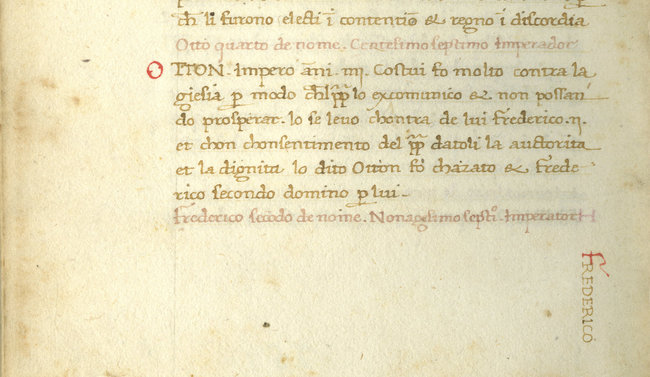 ch̄ li furono electi ī contentiōe & regno i discordia
Otto quarto de nome. Centesimo septimo Imperador
OTTON. Impero āni. iiii. Costui fo molto contra la
giesia ꝑ modo ch̄l pp̄ lo excomunico & non possan
do prosperar. lo se levo chontra de lui frederico. ij.
et chon chonsentimento del pp̄ datoli la auctorita
et la dignita lo dito Otton fo chazato & frede
rico secondo domino ꝑ lui.
frederico secōdo de nome. Nonagesimo septi͂o. Imperator
FREDERICO